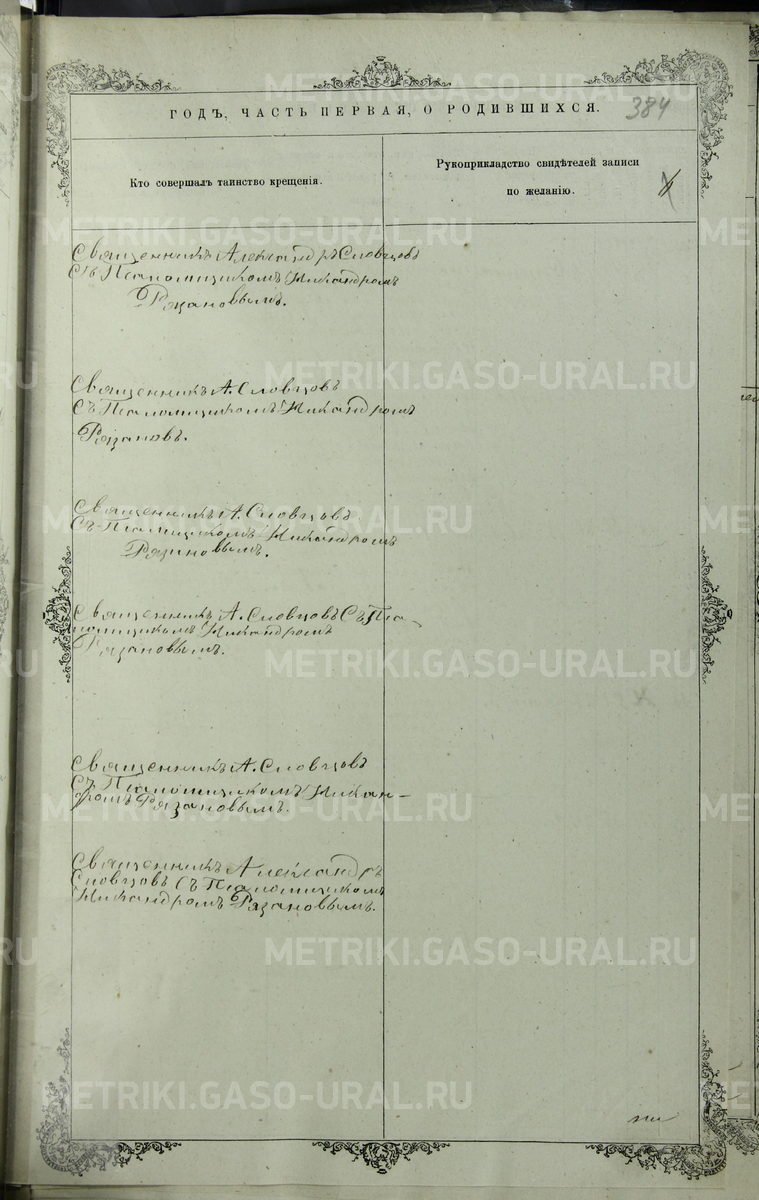 ГОДЪ, ЧАСТЬ ПЕРВАЯ, О РОДИВШИХСЯ.
384
Кто совершалъ таинство крещенія.
Рукоприкладство свидѣтелей записи
по желанію.
Священникъ Александръ Словцовъ
Съ Псаломщикомъ Никандромъ
Рязановымъ.
Священникъ А. Словцовъ
Съ Псаломщикомъ Никандромъ
Рязановъ.
Священникъ А. Словцовъ
Съ Псаломщикомъ Никандромъ
Рязановымъ.
Священникъ А. Словцовъ Съ Пса-
ломщикомъ Никандромъ
Рязановымъ.
Священникъ А. Словцовъ
Съ Псаломщикомъ Никан-
дромъ Рязановымъ.
Священникъ Александръ
Словцовъ Съ Псаломщикомъ
Никандромъ Рязановымъ.
METRIKI.GASO-URAL.RU